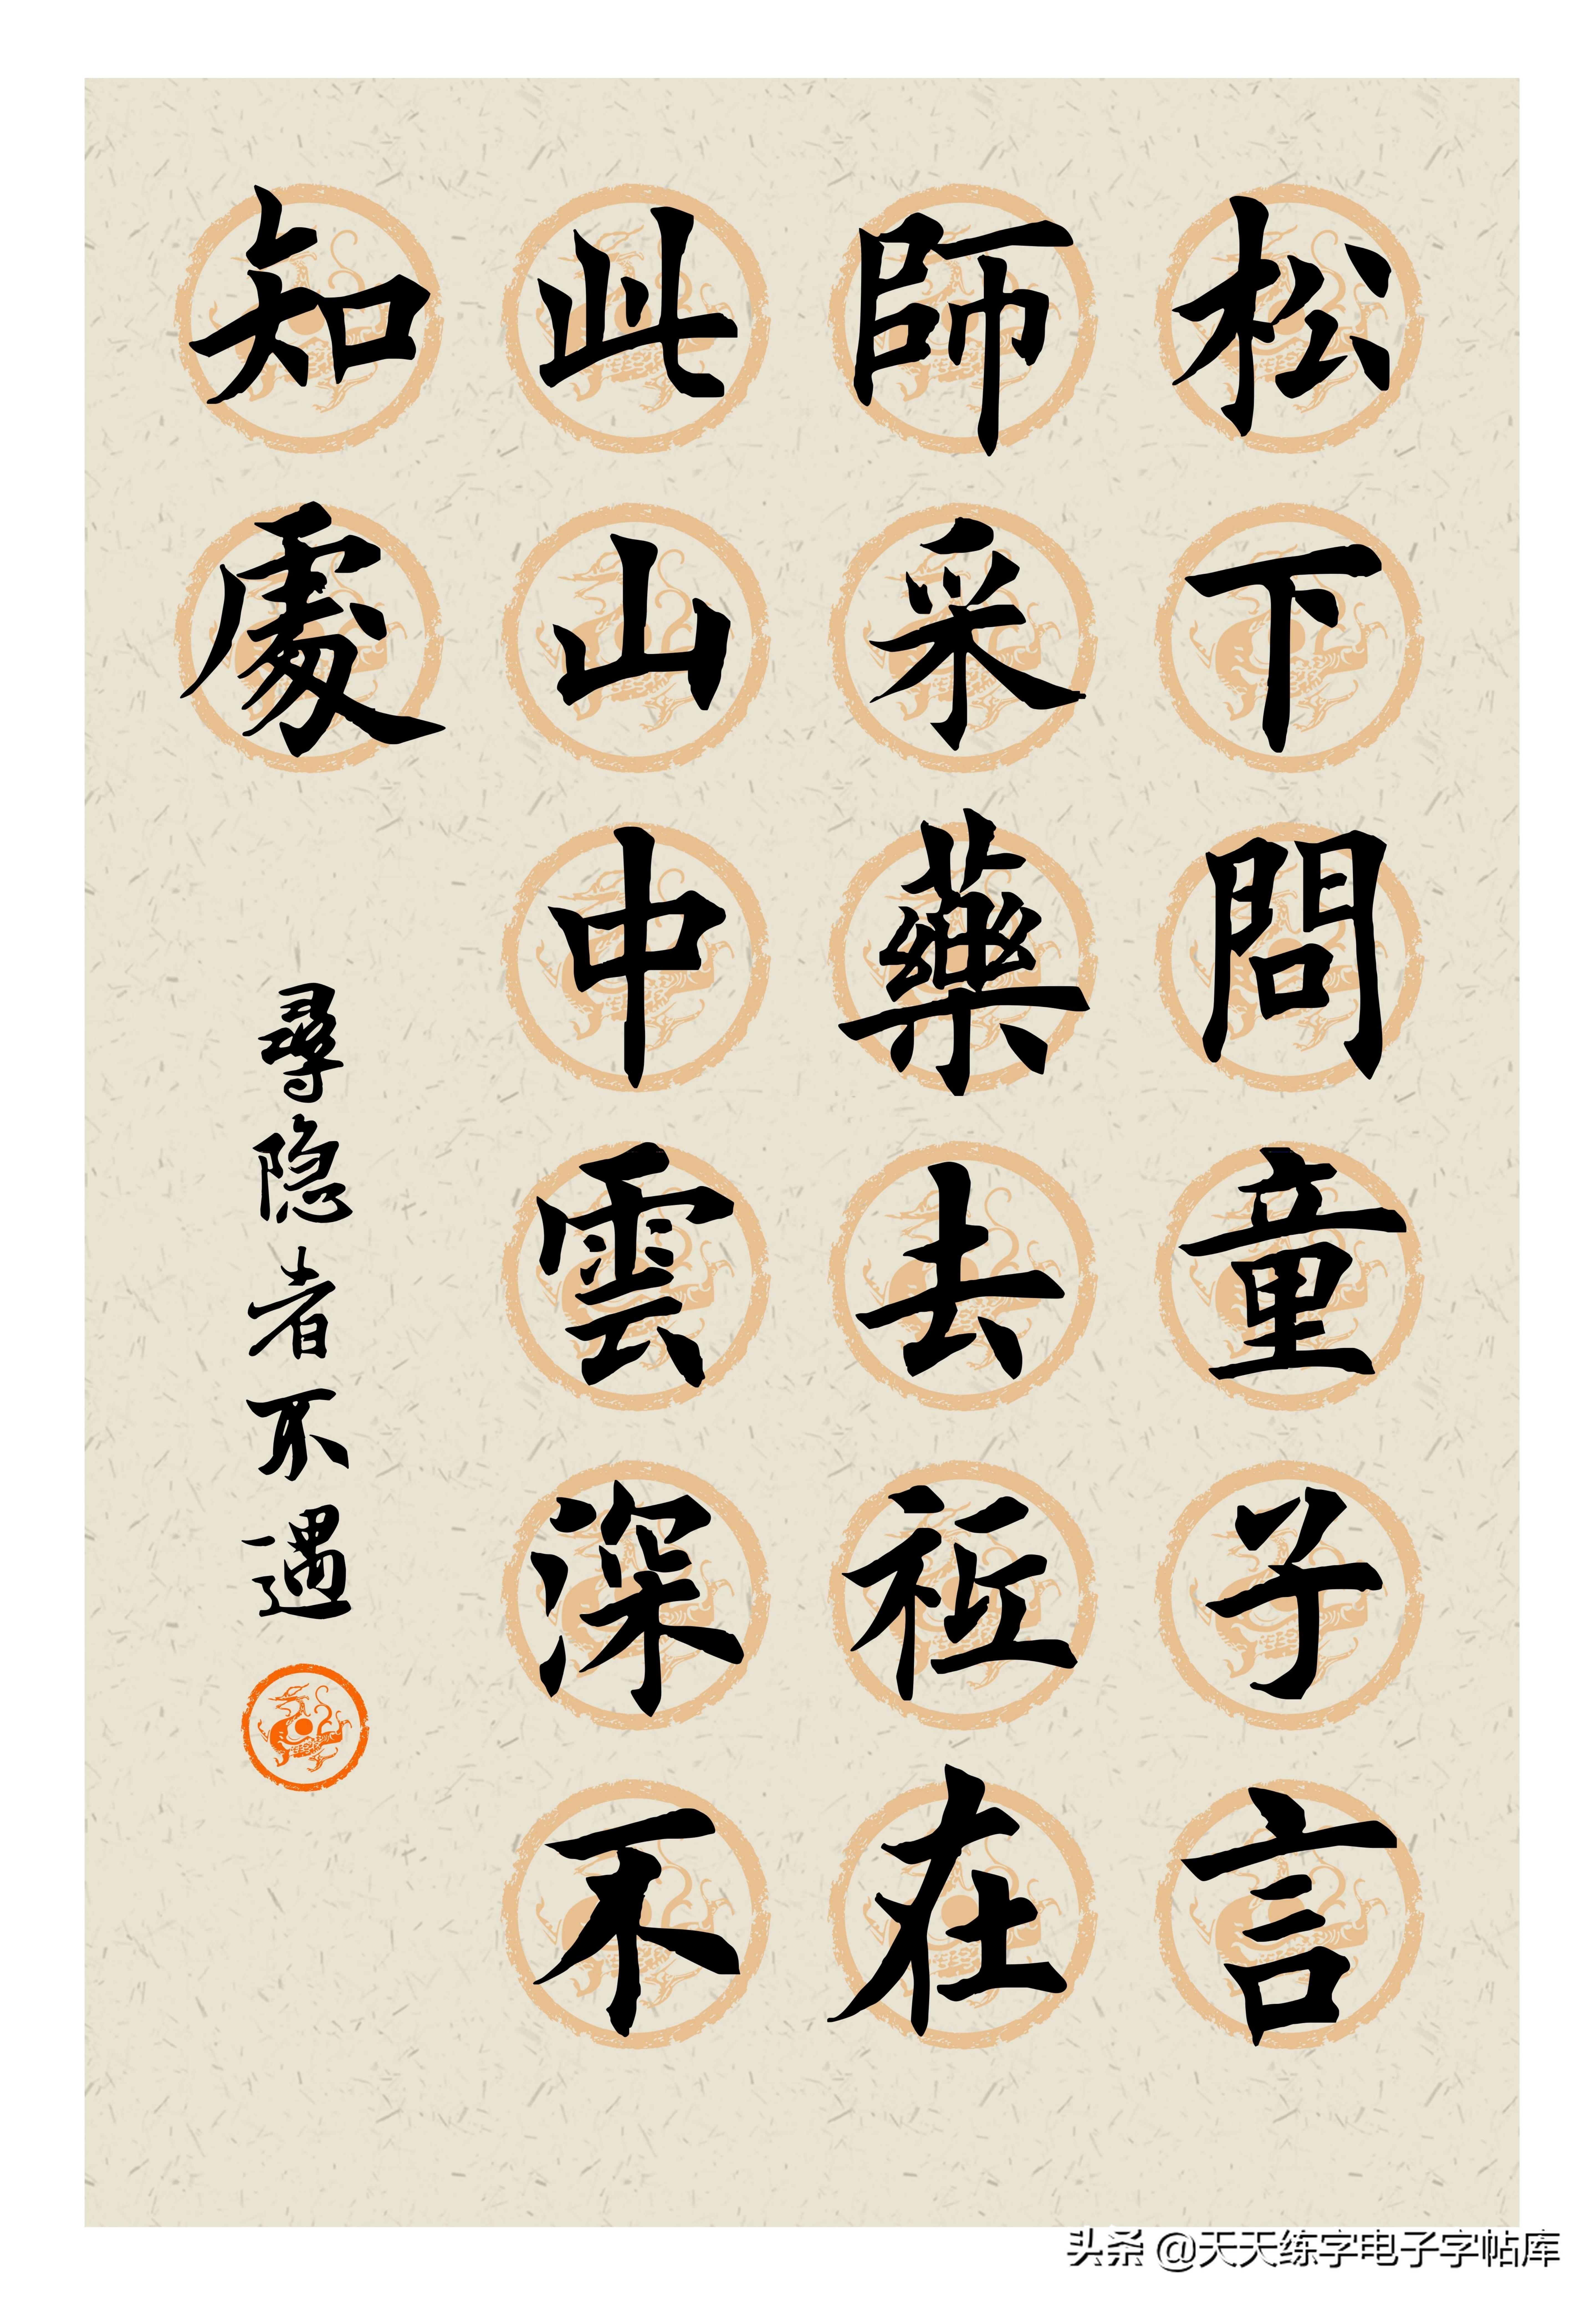 松下問童子言
師采藥去祗在
此山中雲深不
知處
尋隐者不遇
头条 @天天练字电子字帖库